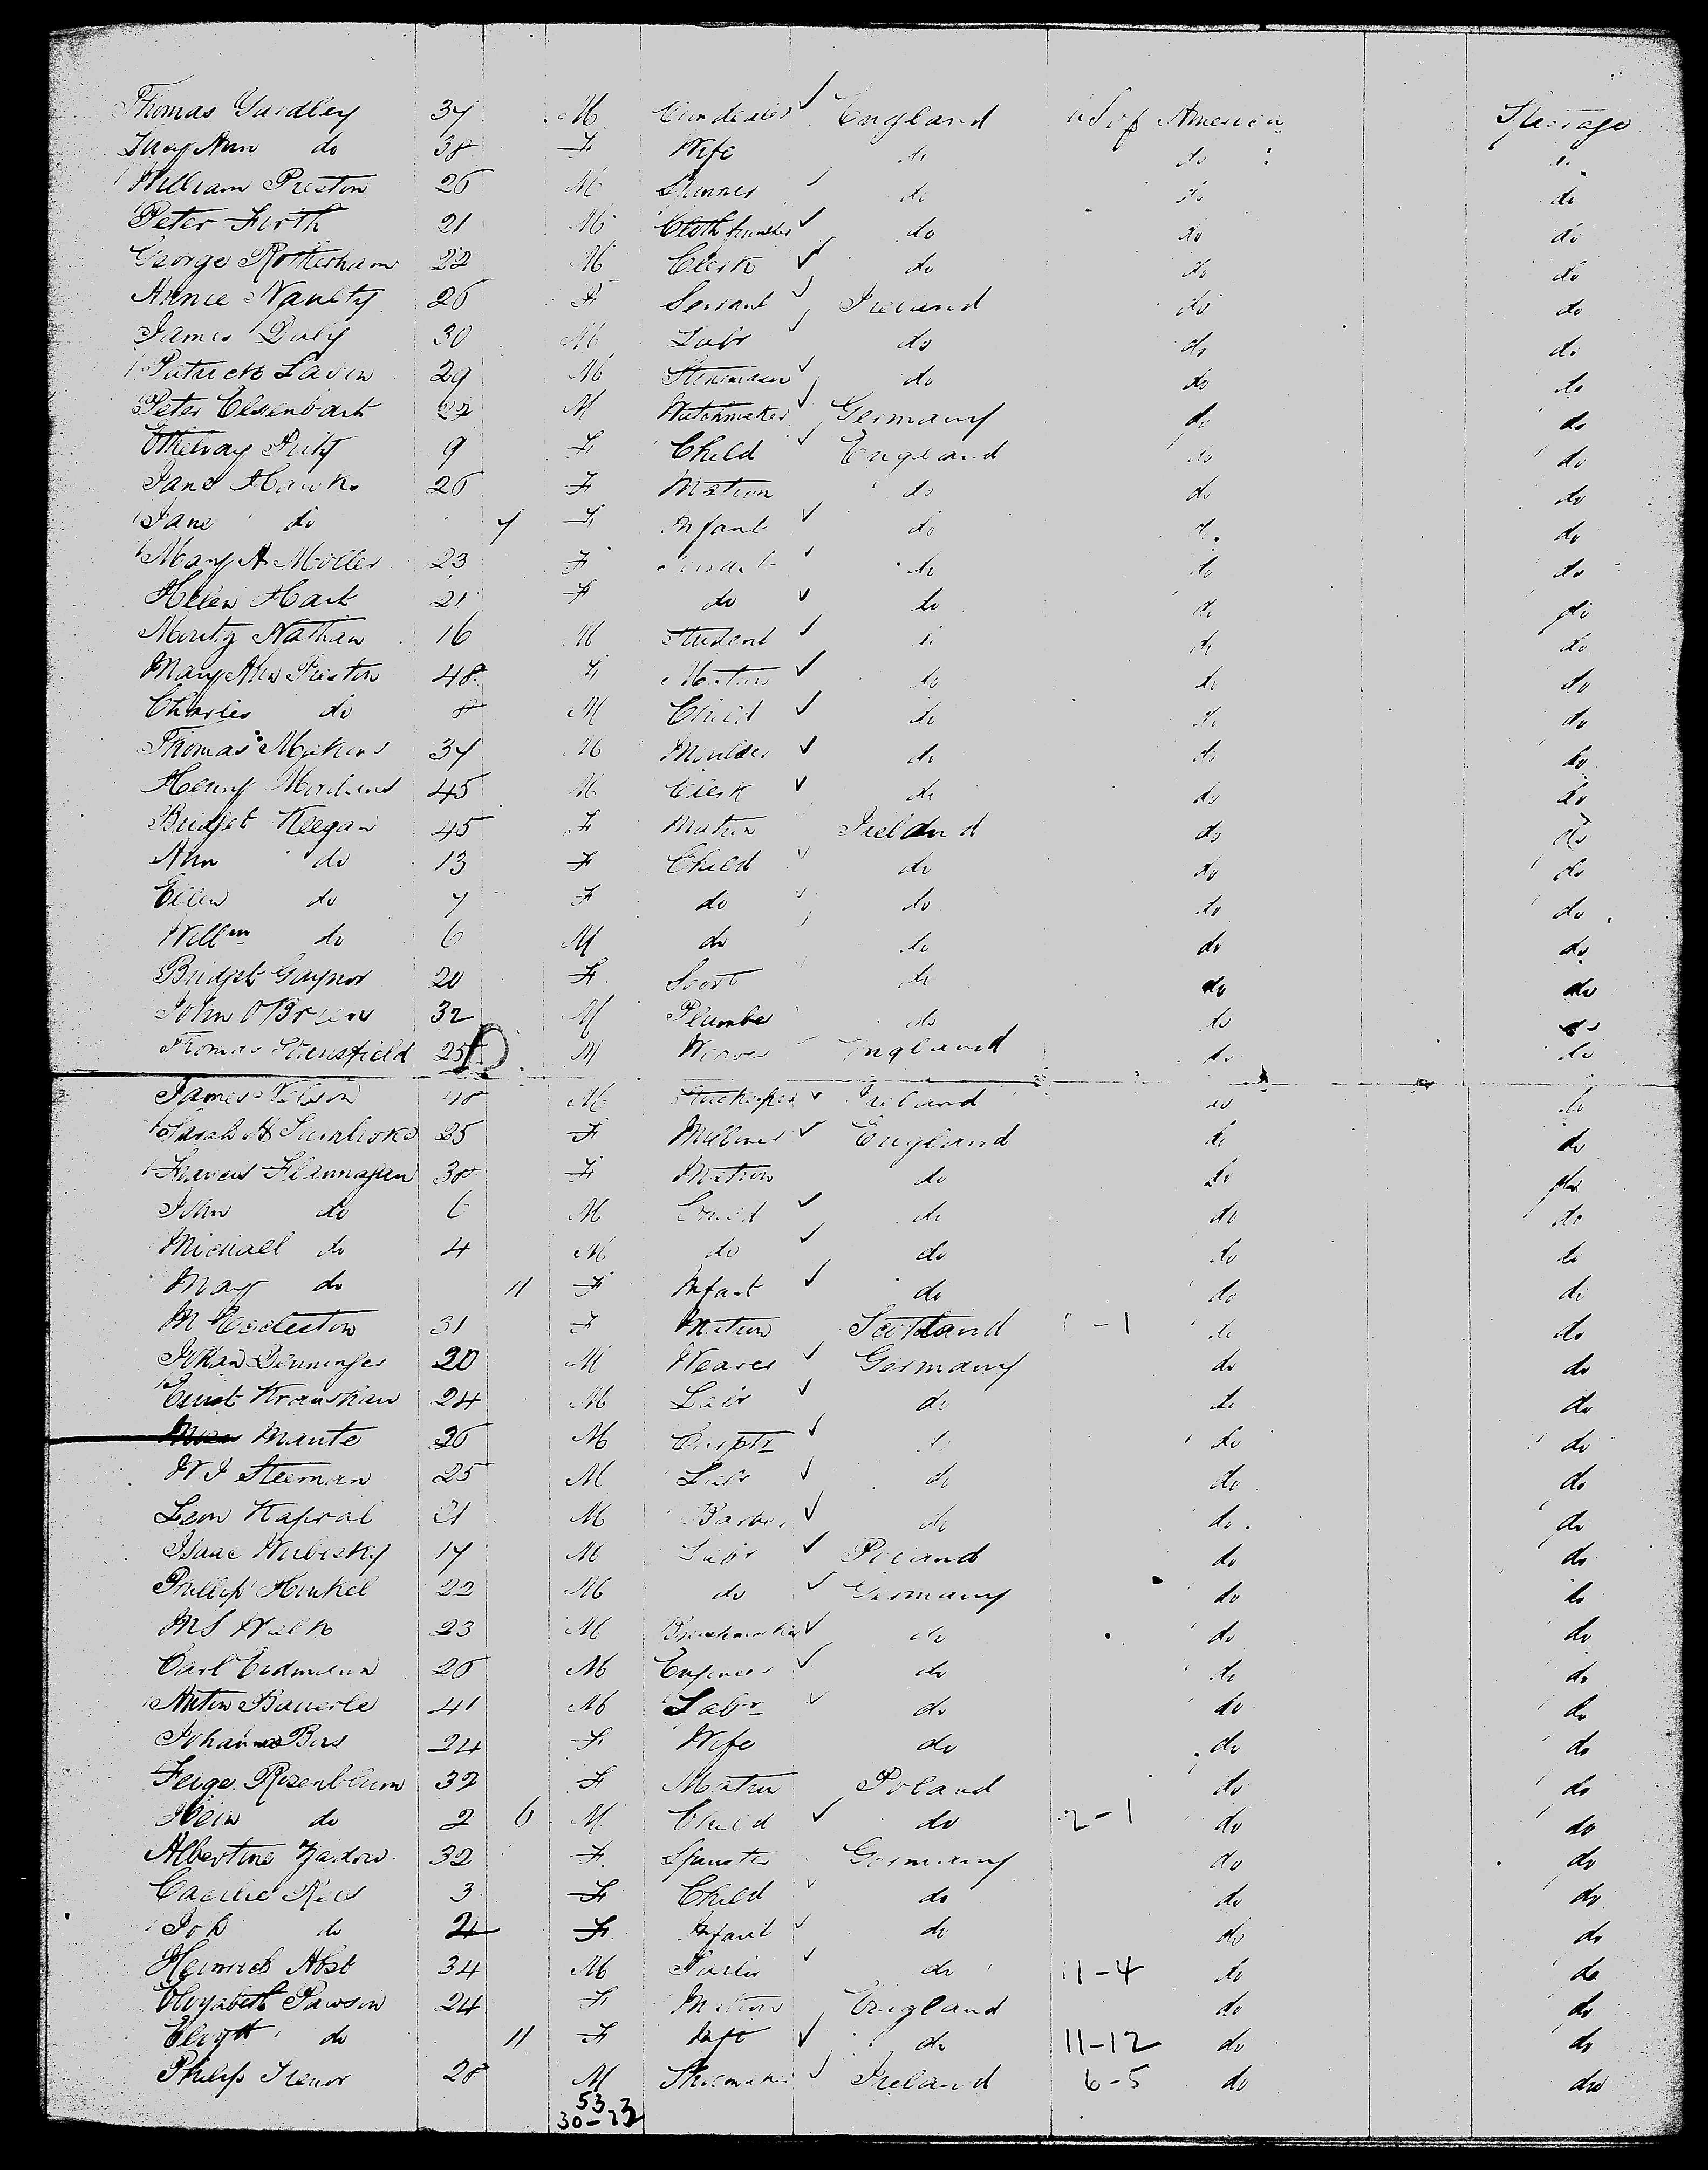 Thomas Yardley 37 M England US of America Steerage
Mary Ann do 38 F Wife do do do
William Preston 26 M Spinner do do do
Peter Firth 21 M Cloth finisher do do do
George Rotherham 22 M Clerk do do do
Annie Naulty 26 F Servant Ireland do do
James Daly 30 M Labr do do do
Patrick Lavin 29 M do do do
Peter Elsenbark 22 M Watchmaker Germany do do
9 F Child England do do
Jane Hawk 26 F Matron do do do
Jane do 7 F Infant do do do
Mary A Moller 23 F Servant do do do
Helen Hart 21 F do do do do
Moritz Nathan 16 M Student do do do
Mary Ann Preston 48 F Matron do do do
Charles do 8 M Child do do do
Thomas 37 M Moulder do do do
Henry 45 M Clerk do do do
Bridget Keegan 45 F Matron Ireland do do
Ann do 13 F Child do do do
Ellen do 7 F do do do do
Willm do 6 M do do do do
Bridget Gaynor 20 F do do do
John O'Brien 32 M Plumber do do do
Thomas Stansfield 25 D M Weaver England do do
James Nelson 48 M Ireland do do
Sarah A 25 F Milliner England do do
Frances Flannagan 38 F Matron do do do
John do 6 M Child do do do
Michael do 4 M do do do do
Mary do 11 F Infant do do do
M Eccleston 31 F Matron Scotland do do
Johan Denninger 20 M Weaver Germany do do
Ernst 24 M Labr do do do
Mante 26 M Carptr do do do
W J Steeman 25 M Labr do do do
Leon Kapral 21 M Barber do do do
Isaac Wubisky 17 M Labr Poland do do
Phillip Henkel 22 M do Germany do do
M S 23 M do do do
Carl Erdmann 26 M Engineer do do do
Anton Bauerle 41 M Labr do do do
Johanna 24 F Wife do do do
Feige Rosenblum 32 F Matron Poland do do
do 2 6 M Child do 2-1 do do
Albertine Zadow 32 F Spinster Germany do do
Caecilie 3 F Child do do do
do 2 F Infant do do do
Heinrich Abst 34 M do 11-4 do do
Elizabeth Pawson 24 F Matron England do do
Elizth do 11 F Inft do 11-12 do do
Philip 28 M Shoemaker Ireland 6-5 do do
53
30-23